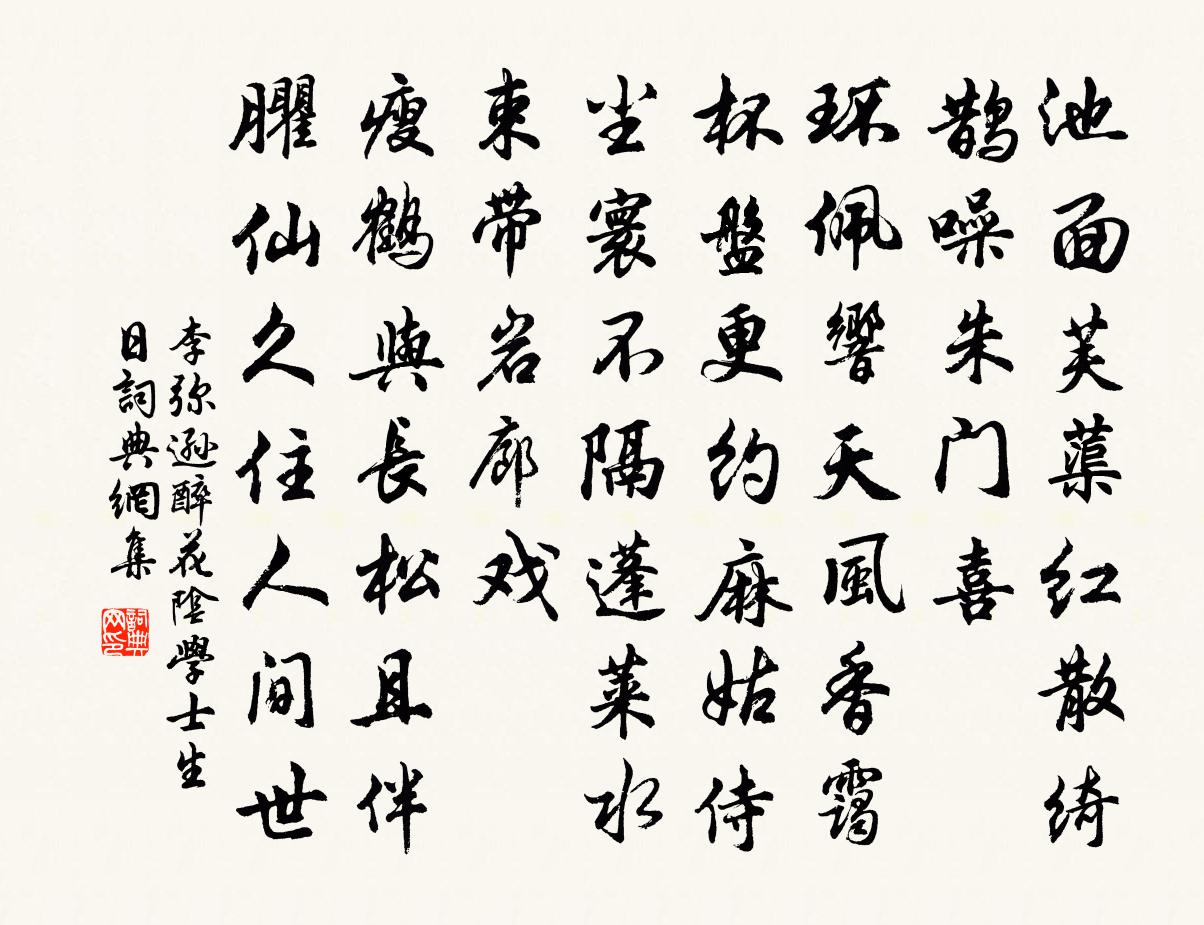 池面芙蕖红散绮
鹊噪朱门喜
环佩響天風香靄
杯盤更约麻姑侍
尘寰不隔蓬莱水
束带岩廊戏
瘦鹤與長松且伴
臞仙久住人间世
李弥遜醉花陰學士生
日詞典網集
詞典网印